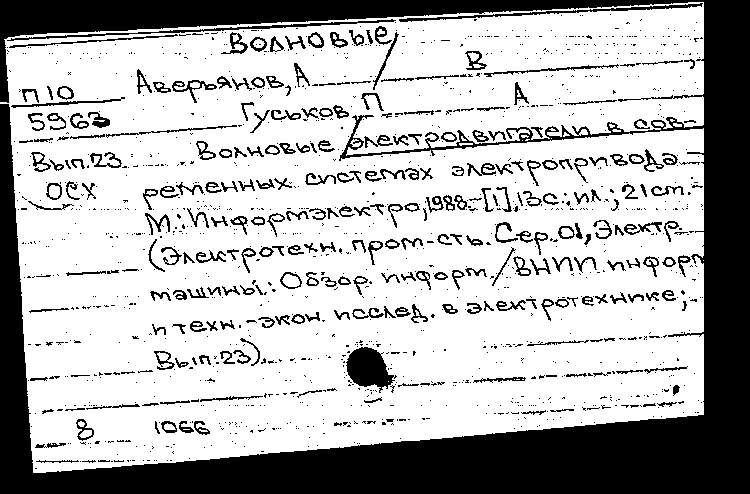 Волновые/
Аверьянов, А В
П10 Гуськов, П А
5963
Вып.23 Волновые /электродвигатели в сов-
ОСХ ременных системах электропривода -
М.: Информэлектро, 1988.-[1], 13с.: ил.; 21 ст.-
(Электротехн. пром-сть. Сер. 01, Электр.
машины: Обзор. информ. / ВНИИ информ
и техн.-экон. исслед. в электротехнике;
Вып. 23).
8 1066